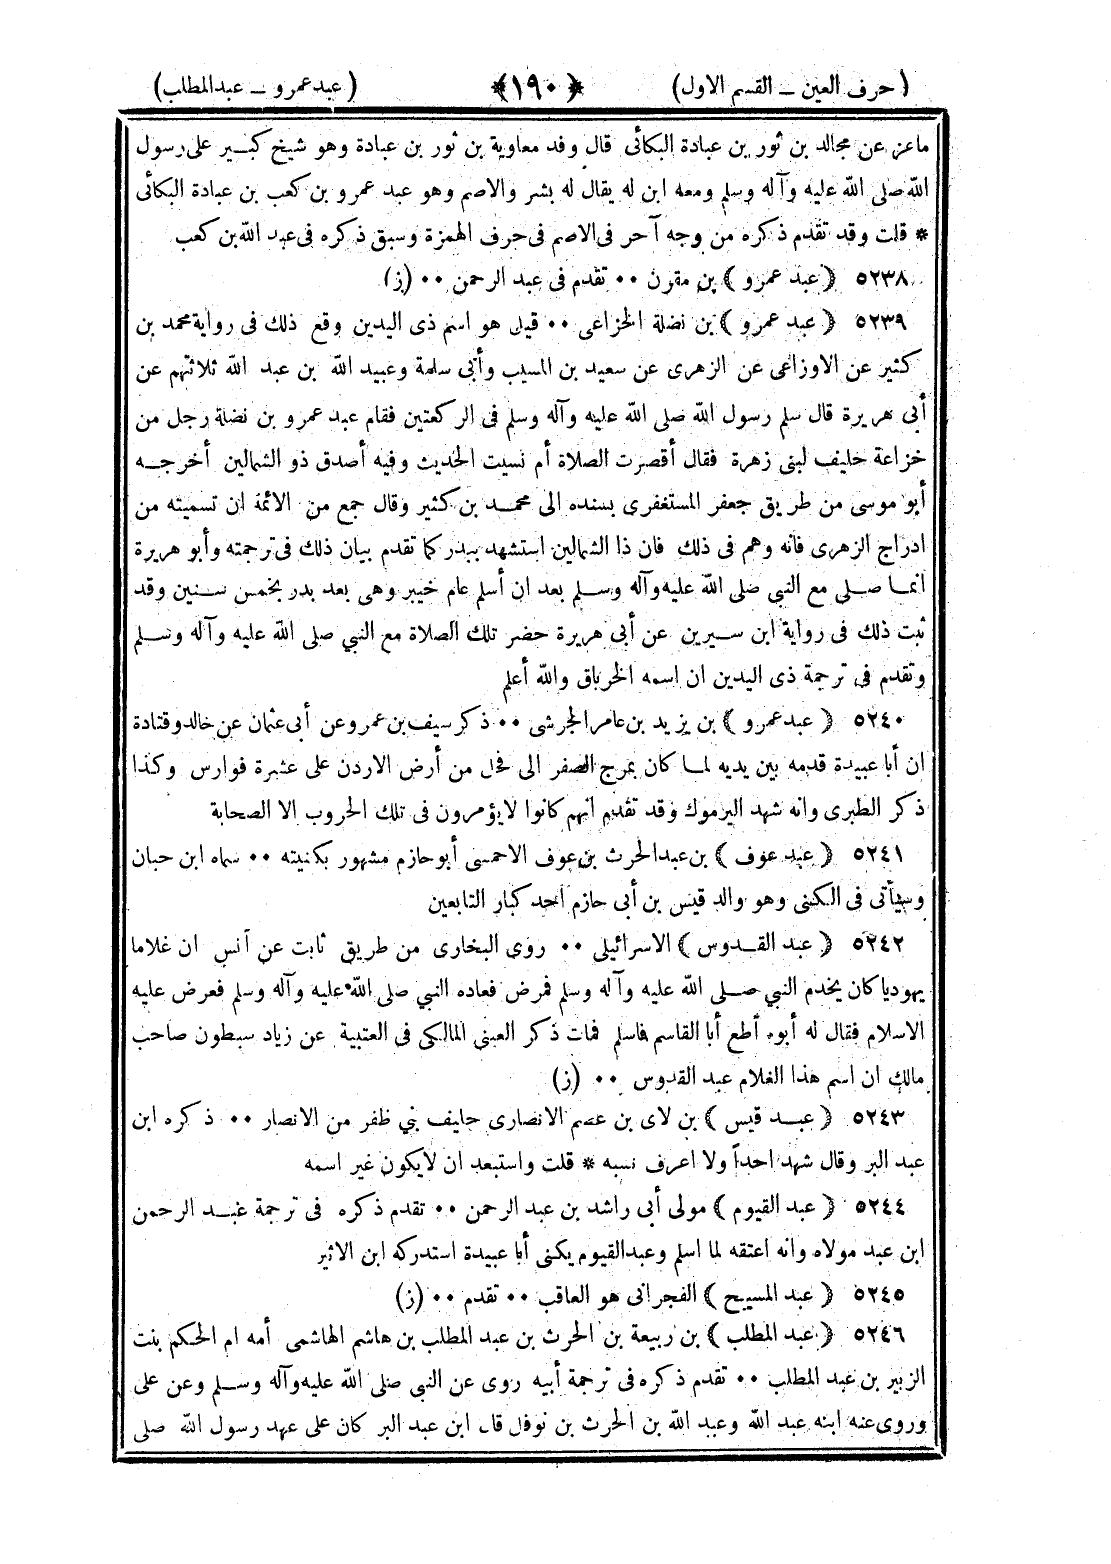 (حرف العين ــ القسم الاول) ﴿١٩٠﴾ (عبد عمرو ــ عبد المطلب)
ماعز عن مجالد بن ثور بن عبادة البكائى قال وفد معاوية بن ثور بن عبادة وهو شيخ كبير على رسول
الله صلى الله عليه وآله وسلم ومعه ابن له يقال له بشر والاصم وهو عبد عمرو بن كعب بن عبادة البكائى
* قلت وقد تقدم ذكره من وجه آخر فى الاصم فى حرف الهمزة وسبق ذكره فى عبد الله بن كعب
٥٢٣٨ ﴿ عبد عمرو ﴾ بن مقرن ٠٠ تقدم فى عبد الرحمن ٠٠ (ز)
٥٢٣٩ ﴿ عبد عمرو ﴾ بن نضلة الخزاعى ٠٠ قيل هو اسم ذى اليدين وقع ذلك فى رواية محمد بن
كثير عن الاوزاعى عن الزهرى عن سعيد بن المسيب وأبى سلمة وعبيد الله بن عبد الله ثلاثتهم عن
أبى هريرة قال سلم رسول الله صلى الله عليه وآله وسلم فى الركعتين فقام عبد عمرو بن نضلة رجل من
خزاعة حليف لبنى زهرة فقال أقصرت الصلاة أم نسيت الحديث وفيه أصدق ذو الشمالين أخرجه
أبو موسى من طريق جعفر المستغفرى بسنده الى محمد بن كثير وقال جمع من الائمة ان تسميته من
ادراج الزهرى فانه وهم فى ذلك فان ذا الشمالين استشهد ببدر كما تقدم بيان ذلك فى ترجمته وأبو هريرة
انما صلى مع النبي صلى الله عليه وآله وسلم بعد ان أسلم عام خيبر وهى بعد بدر بخمس سنين وقد
ثبت ذلك فى رواية ابن سيرين عن أبى هريرة حضر تلك الصلاة مع النبي صلى الله عليه وآله وسلم
وتقدم فى ترجمة ذى اليدين ان اسمه الخرباق والله أعلم
٥٢٤٠ ﴿ عبد عمرو ﴾ بن يزيد بن عامر الجرشى ٠٠ ذكر سيف بن عمرو عن أبى عثمان عن خالد وقتادة
ان أبا عبيدة قدمه بين يديه لما كان بمرج الصفر الى فحل من أرض الاردن على عشرة فوارس وكذا
ذكر الطبرى وانه شهد اليرموك وقد تقدم انهم كانوا لا يؤمرون فى تلك الحروب الا الصحابة
٥٢٤١ ﴿ عبد عوف ﴾ بن عبد الحرث بن عوف الاحمسى أبو حازم مشهور بكنيته ٠٠ سماه ابن حبان
وسيأتى فى الكنى وهو والد قيس بن أبى حازم أحد كبار التابعين
٥٢٤٢ ﴿ عبد القدوس ﴾ الاسرائيلى ٠٠ روى البخارى من طريق ثابت عن أنس ان غلاما
يهوديا كان يخدم النبي صلى الله عليه وآله وسلم فمرض فعاده النبي صلى الله عليه وآله وسلم فعرض عليه
الاسلام فقال له أبوه أطع أبا القاسم فاسلم فمات ذكر العتبي المالكى فى العتبية عن زياد سبطون صاحب
مالك ان اسم هذا الغلام عبد القدوس ٠٠ (ز)
٥٢٤٣ ﴿ عبد قيس ﴾ بن لاى بن عصم الانصارى حليف بني ظفر من الانصار ٠٠ ذكره ابن
عبد البر وقال شهد احداً ولا اعرف نسبه * قلت واستبعد ان لا يكون غير اسمه
٥٢٤٤ ﴿ عبد القيوم ﴾ مولى أبى راشد بن عبد الرحمن ٠٠ تقدم ذكره فى ترجمة عبد الرحمن
ابن عبد مولاه وانه اعتقه لما اسلم وعبد القيوم يكنى أبا عبيدة استدركه ابن الاثير
٥٢٤٥ ﴿ عبد المسيح ﴾ الفجرانى هو العاقب ٠٠ تقدم ٠٠ (ز)
٥٢٤٦ ﴿ عبد المطلب ﴾ بن ربيعة بن الحرث بن عبد المطلب بن هاشم الهاشمى أمه ام الحكم بنت
الزبير بن عبد المطلب ٠٠ تقدم ذكره فى ترجمة أبيه روى عن النبي صلى الله عليه وآله وسلم وعن على
وروى عنه ابنه عبد الله وعبد الله بن الحرث بن نوفل قال ابن عبد البر كان على عهد رسول الله صلى